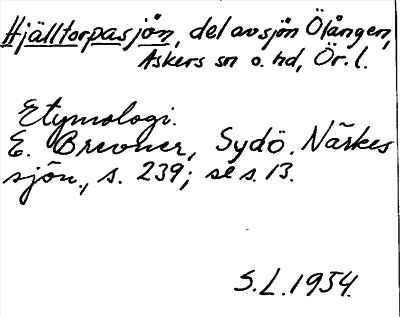 Hjälltorpasjön, del av sjön Ölången,
Askers sn o. hd, Ör. l.
Etymologi.
E. Brevner, Sydö. Närkes
sjön., s. 239; se s. 13.
S.L. 1954.